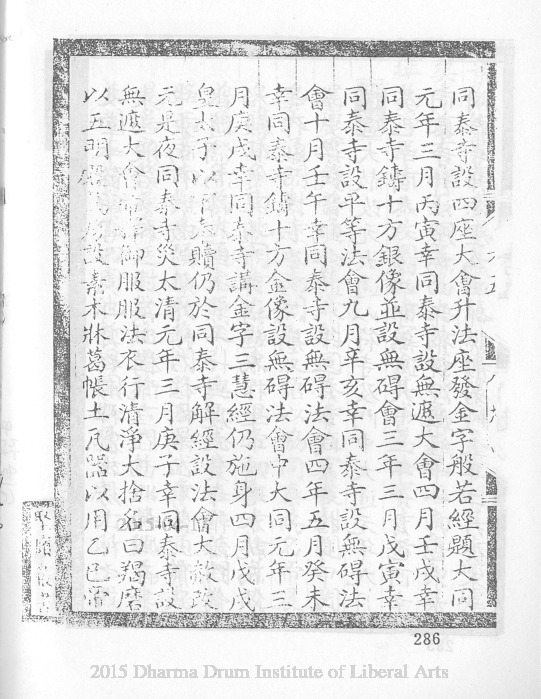 同泰寺設四座大會升法座發金字般若經題大同
元年三月丙寅幸同泰寺設無遮大會四月壬戌幸
同泰寺鑄十方銀像並設無碍會三年三月戊寅幸
同泰寺設平等法會九月辛亥幸同泰寺設無碍法
會十月壬午幸同泰寺設無碍法會四年五月癸未
幸同泰寺鑄十方金像設無碍法會中大同元年三
月庚戌幸同泰寺講金字三慧經仍施身四月戊戌
皇太子以下奉贖仍於同泰寺解經設法會大赦改
元是夜同泰寺災太清元年三月庚子幸同泰寺設
無遮大會 御服服法衣行清淨大捨名曰羯磨
以五明 設素木牀葛帳土瓦器以用乙巳帝
286
2015 Dharma Drum Institute of Liberal Arts